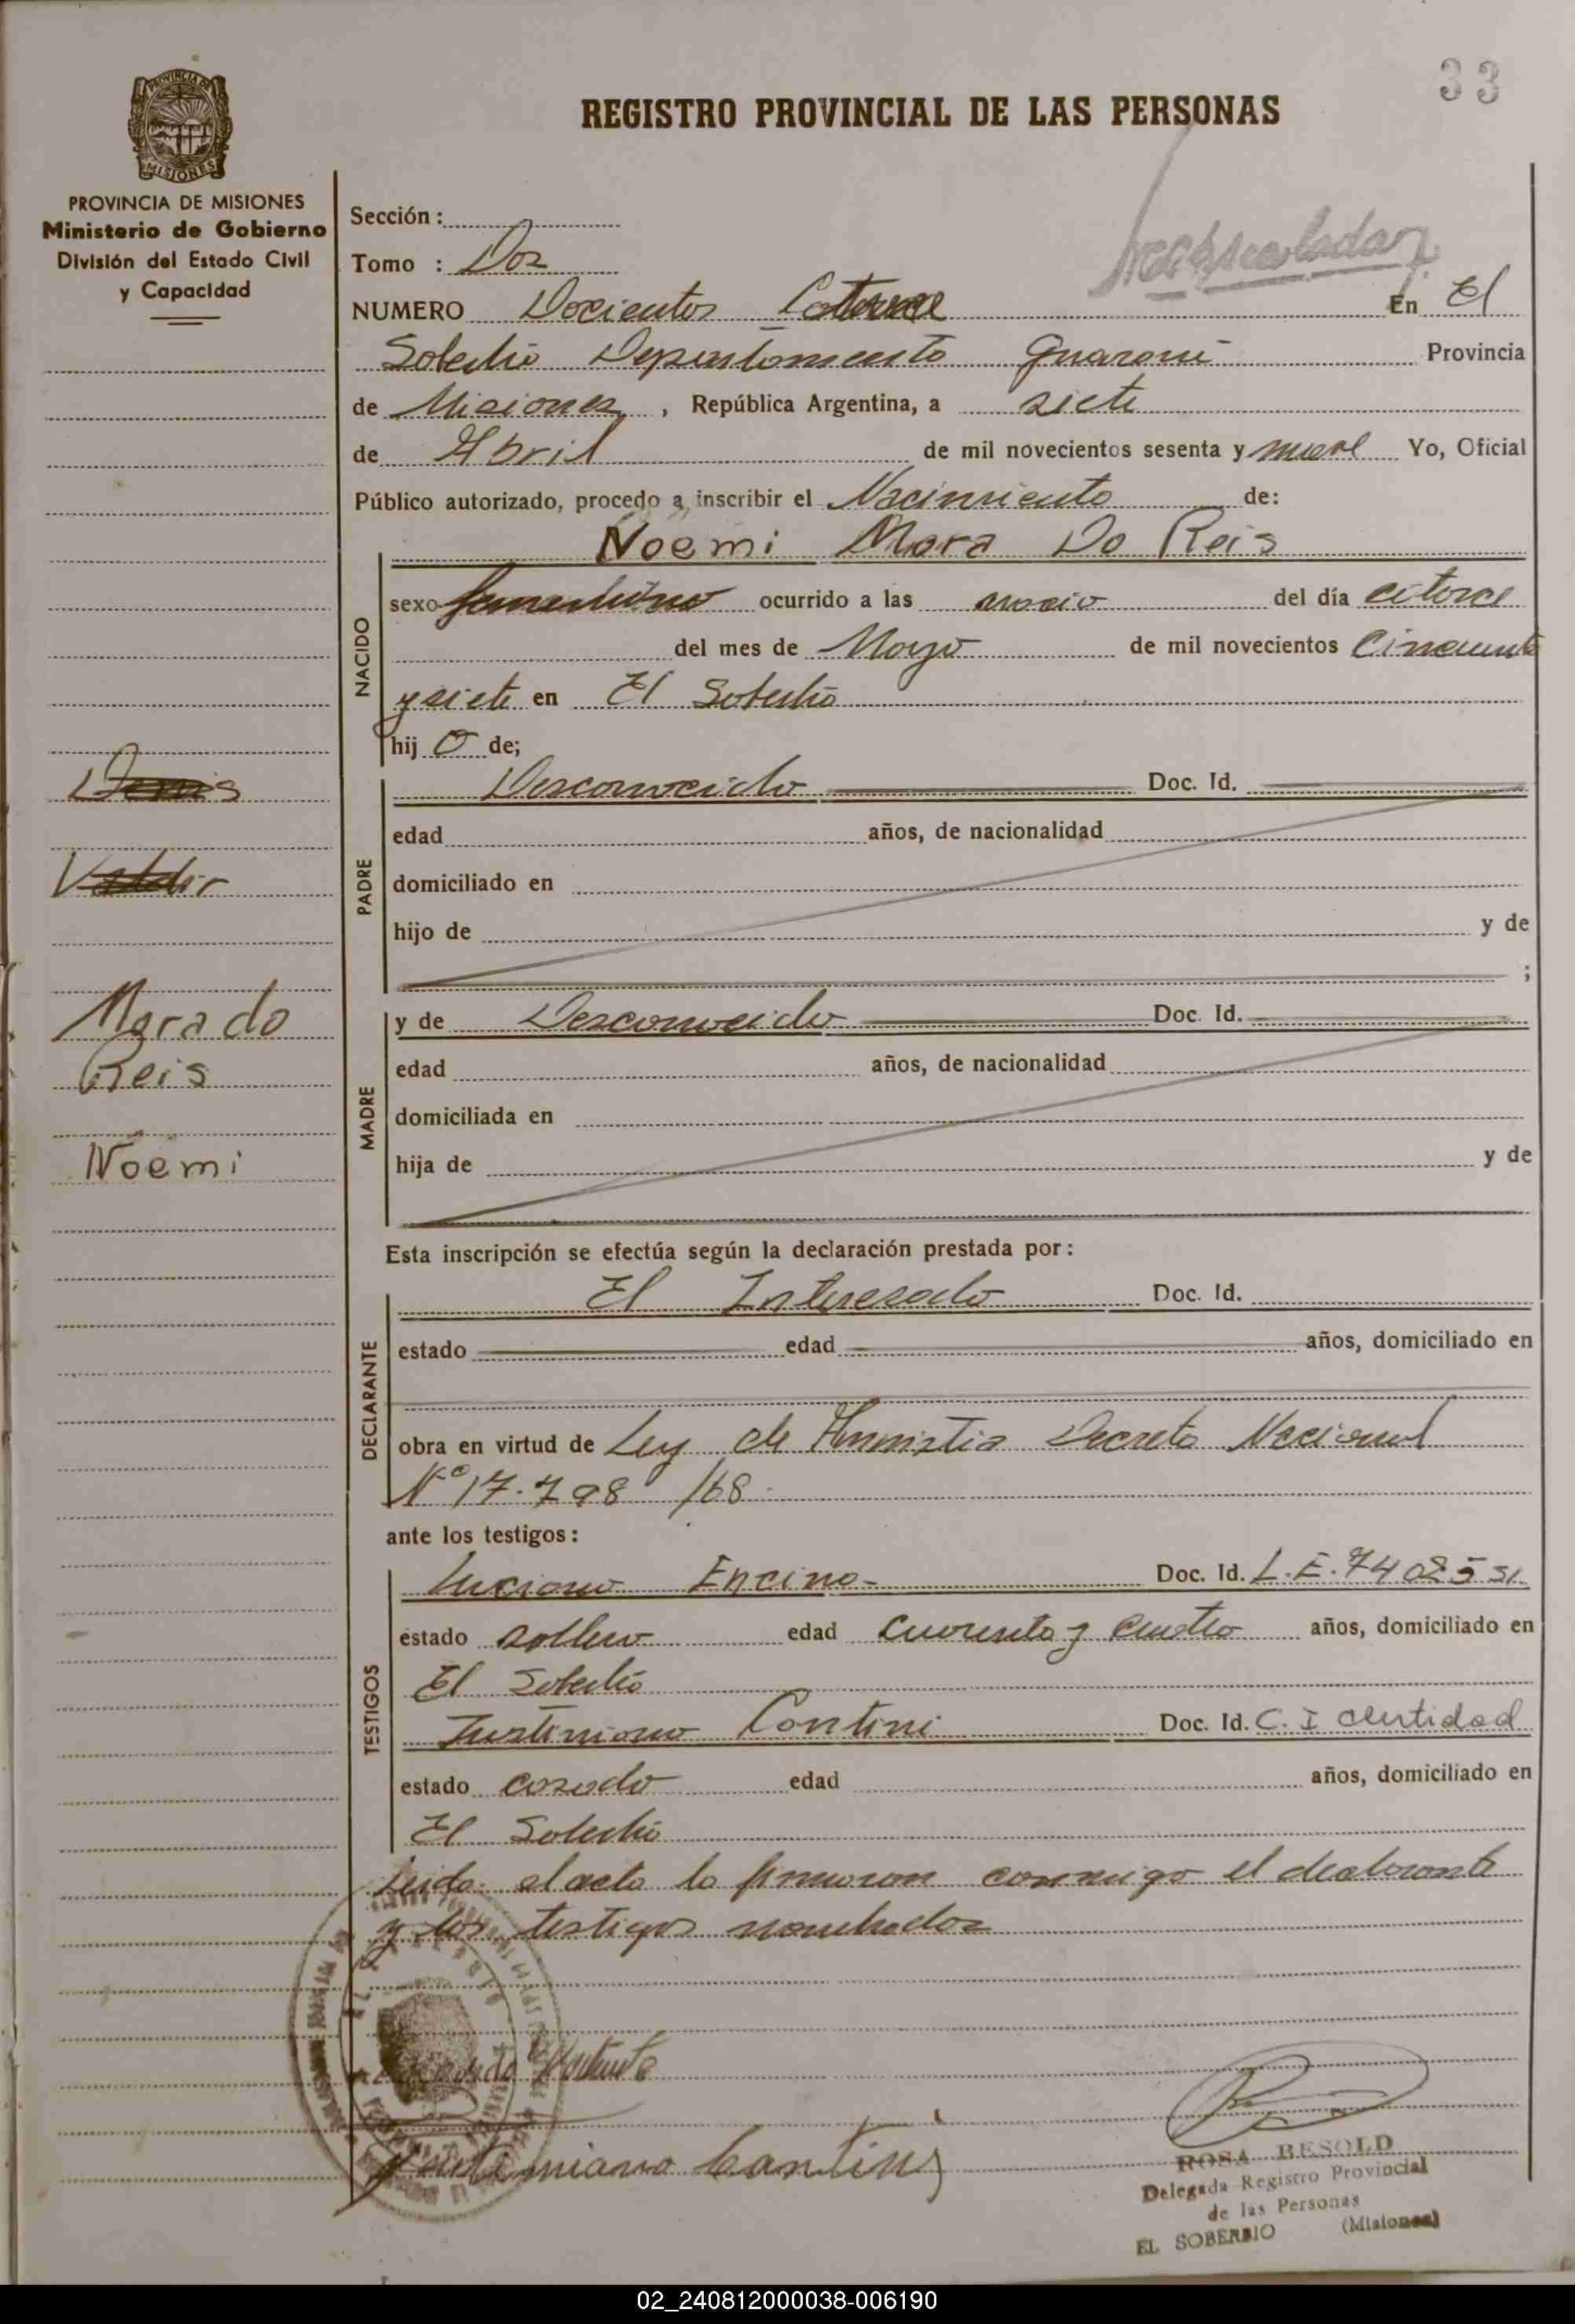 33
REGISTRO PROVINCIAL DE LAS PERSONAS
PROVINCIA DE MISIONES
PROVINCIA DE MISIONES
Ministerio de Gobierno
División del Estado Civil
y Capacidad
Sección:
Tomo : Dos
NUMERO Docientos Catorce En El
Soberbio Departamento Guarani Provincia
de Misiones, República Argentina, a siete
de Abril de mil novecientos sesenta y nueve Yo, Oficial
Público autorizado, procedo a inscribir el Nacimiento de:
Noemi Mara Do Reis
NACIDO
sexo ocurrido a las del día catorce
del mes de Mayo de mil novecientos Cincuenta
y siete en El Soberbio
hij o de;
PADRE
Desconocido Doc. Id.
edad años, de nacionalidad
domiciliado en
hijo de y de
;
MADRE
y de Desconocido Doc. Id.
edad años, de nacionalidad
domiciliada en
hija de y de
Mara do
Reis
Noemi
Esta inscripción se efectúa según la declaración prestada por:
DECLARANTE
El Interesado Doc. Id.
estado edad años, domiciliado en
obra en virtud de Ley de Amnistia Decreto Nacional
Nº 17.798 /68
ante los testigos:
TESTIGOS
Luciano Encina Doc. Id. L.E. 7408531
estado soltero edad cuarenta y cuatro años, domiciliado en
El Soberbio
Justiniano Contini Doc. Id. C. I
estado casado edad años, domiciliado en
El Soberbio
Leida el acta la firmaron conmigo el declarante
y los testigos nombrados
ROSA BESOLD
Delegada Registro Provincial
de las Personas
EL SOBERBIO (Misiones)
02_240812000038-006190